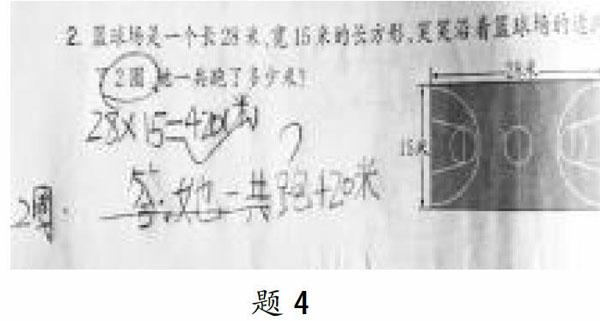 2. 篮球场是一个长28米,宽15米的长方形,笑笑沿着篮球场的边
了2圈,她一共跑了多少米?
28米
15米
28×15=420(米)
答:她一共跑420米
2圈.
题 4